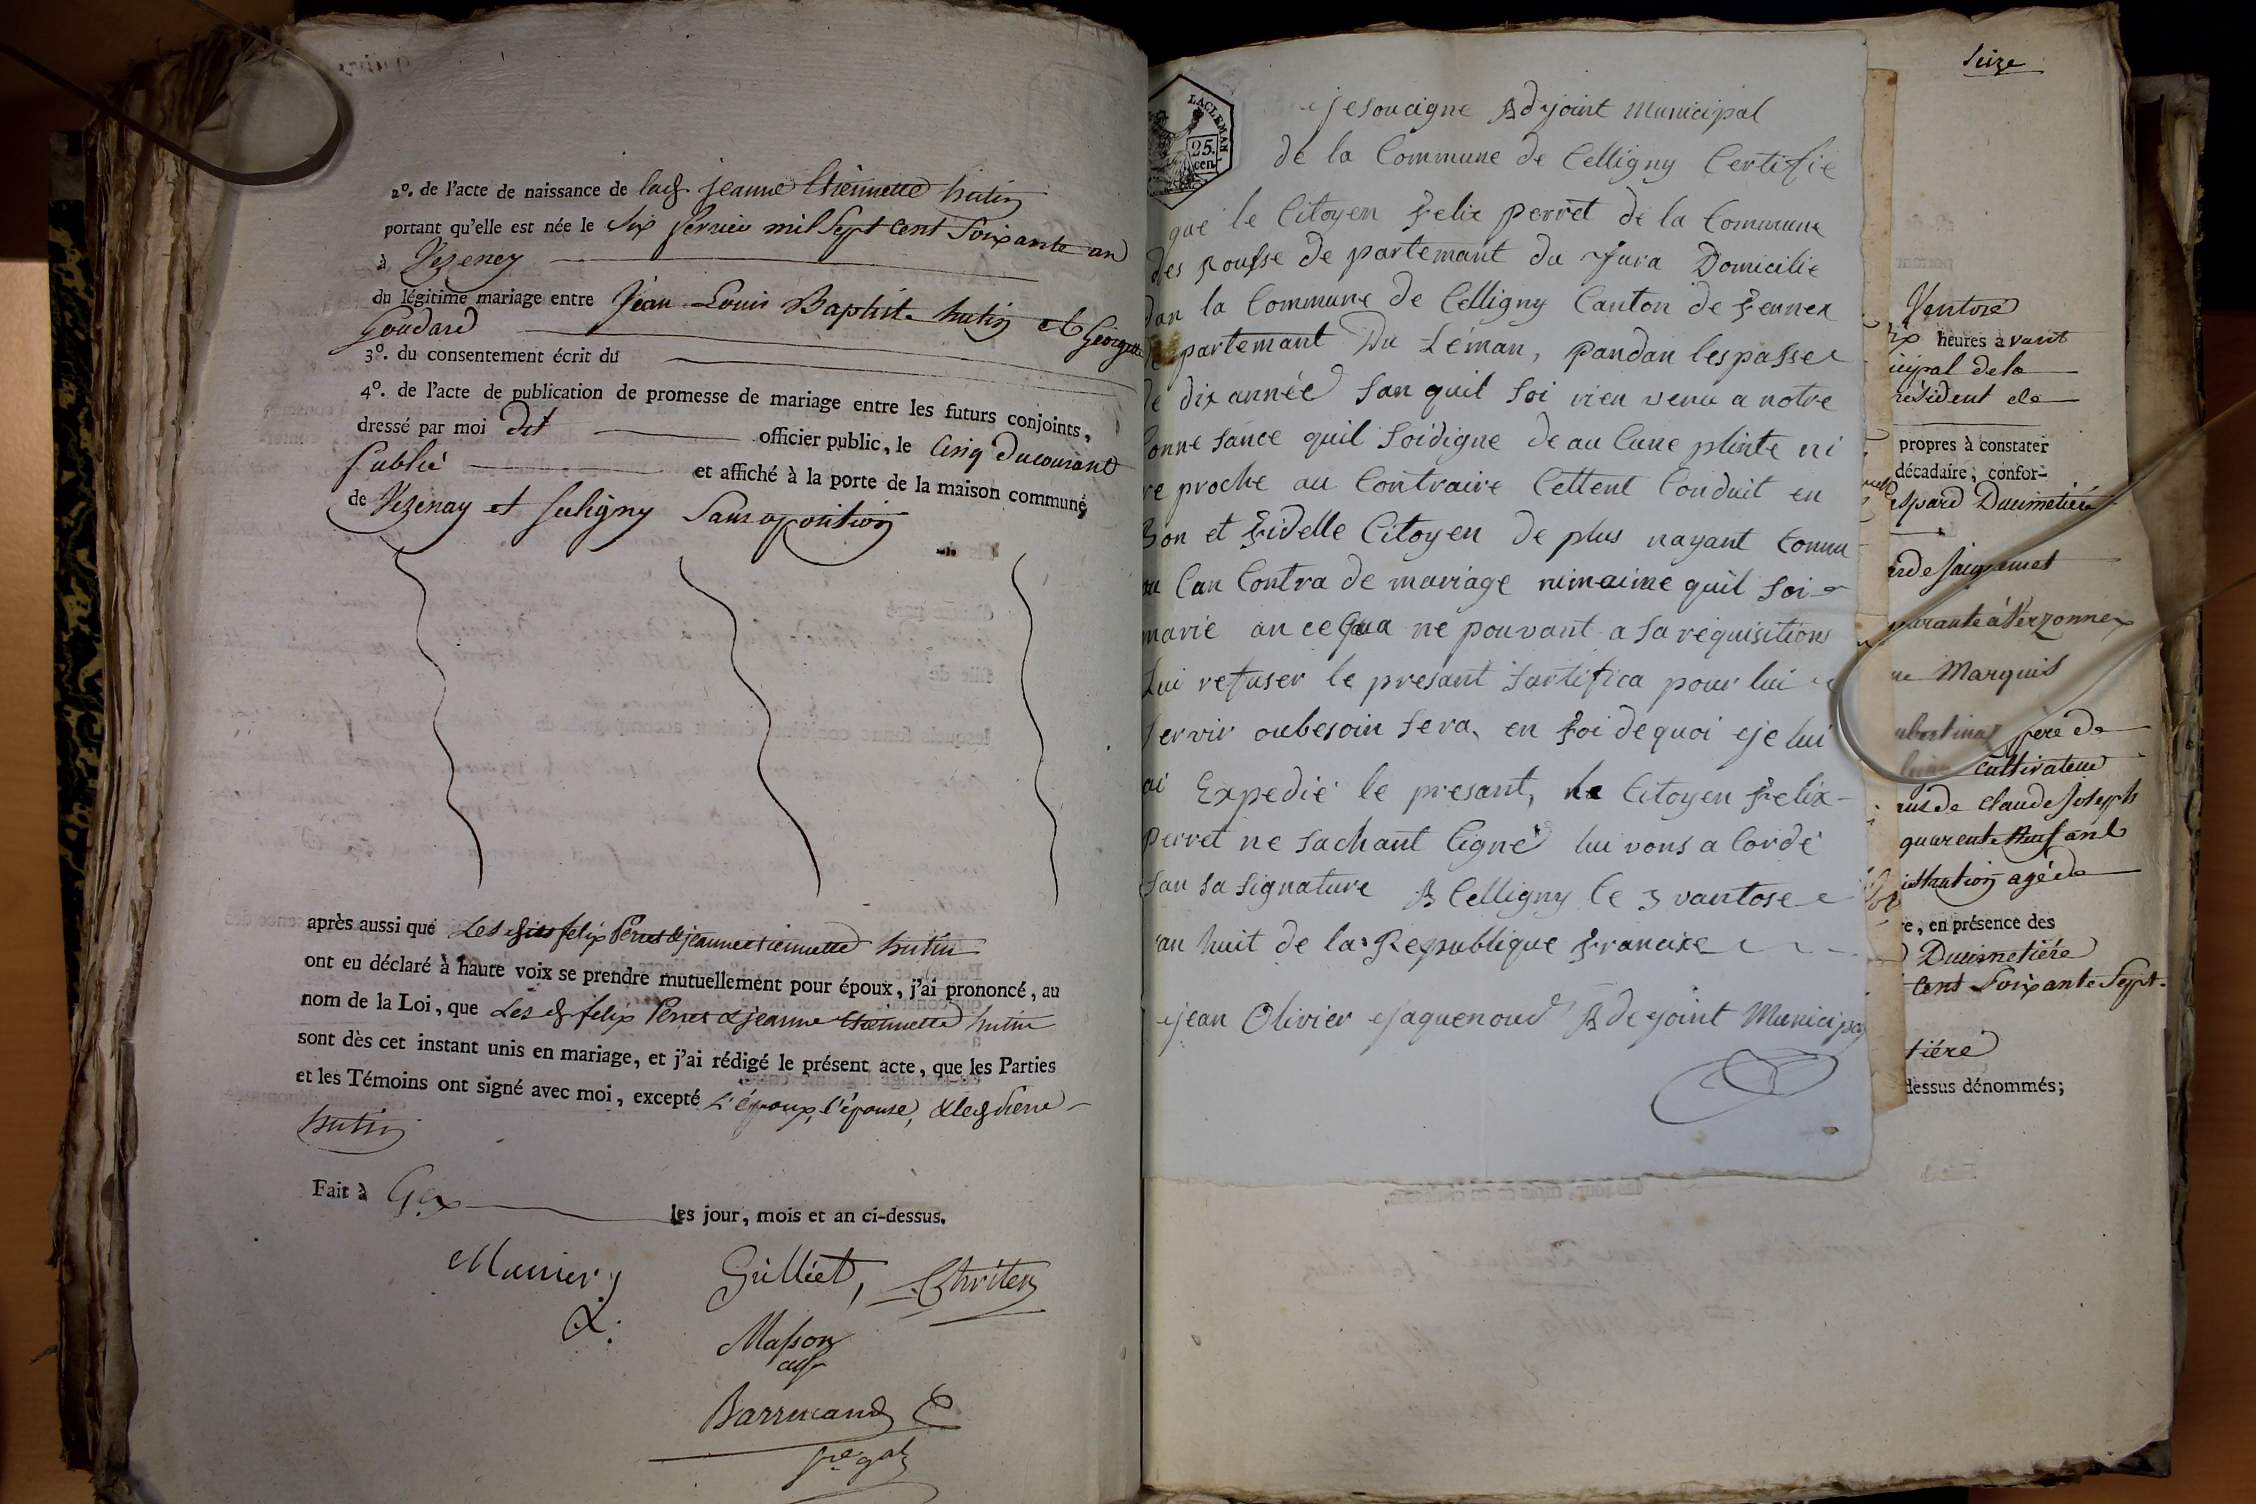 2º. de l'acte de naissance de la jeanne Etiennette hutin
portant qu'elle est née le Six fevrier mil Sept Cent Soixante un
à Vezeney
du légitime mariage entre Jean Louis Baptiste hutin et Georgette
Goudard
3º. du consentement écrit du
4º. de l'acte de publication de promesse de mariage entre les futurs conjoints,
dressé par moi dit officier public, le Cinq du courant
publié et affiché à la porte de la maison commune
de Vezenay et Seligny Sans oposition
après aussi que Les felix Perret & jeanne etiennette hutin
ont eu déclaré à haute voix se prendre mutuellement pour époux, j'ai prononcé, au
nom de la Loi, que Les felix Perret & jeanne Etiennette hutin
sont dès cet instant unis en mariage, et j'ai rédigé le présent acte, que les Parties
et les Témoins ont signé avec moi, excepté L'époux, l'épouse, & le pierre
hutin
Fait à Gex les jour, mois et an ci-dessus.
Grilliet,
Masson
Barrucand
LACLEMAN
25.
cen.
jesoucigne Adjoint Municipal
de la Commune de Celligny Certifie
que le Citoyen Felix perret de la Commune
des Rousse de partemant du Jura Domicilié
dan la Commune de Celligny Canton de Fernex
departemant Du Léman, pandan lespasse
de dix année San quil Soi rien venu a notre
Conne Sance quil Soidigne de au Cune plinte ni
re proche au Contraire Cettent Conduit en
Bon et Fidelle Citoyen de plus nayant Connu
au Can Contra de mariage nimaime quil Soi
marié an ce qua ne pouvant a Sa requisitions
Lui refuser le presant Sartifica pour lui
Servir oubesoin Sera, en Foi de quoi je lui
ai Expedié le presant, le Citoyen Felix
Perret ne Sachant Cigné lui vons a Cordé
San Sa Signature A Celligny le 3 vantose
an huit de la Republique Francixe
jean Olivier jaquenoud Adejoint Municipal
Seize
Ventose
heures avant
icipal de la
résident de
propres à constater
décadaire, confor-
spard Ducimetiére
quarante à Verzonnex
Marquis
père de
cultivateur
de Claude Joseph
quarente Neuf ans
age de
re, en présence des
Ducimetiére
Cent Soixante Sept.
tiére
dessus dénommés;